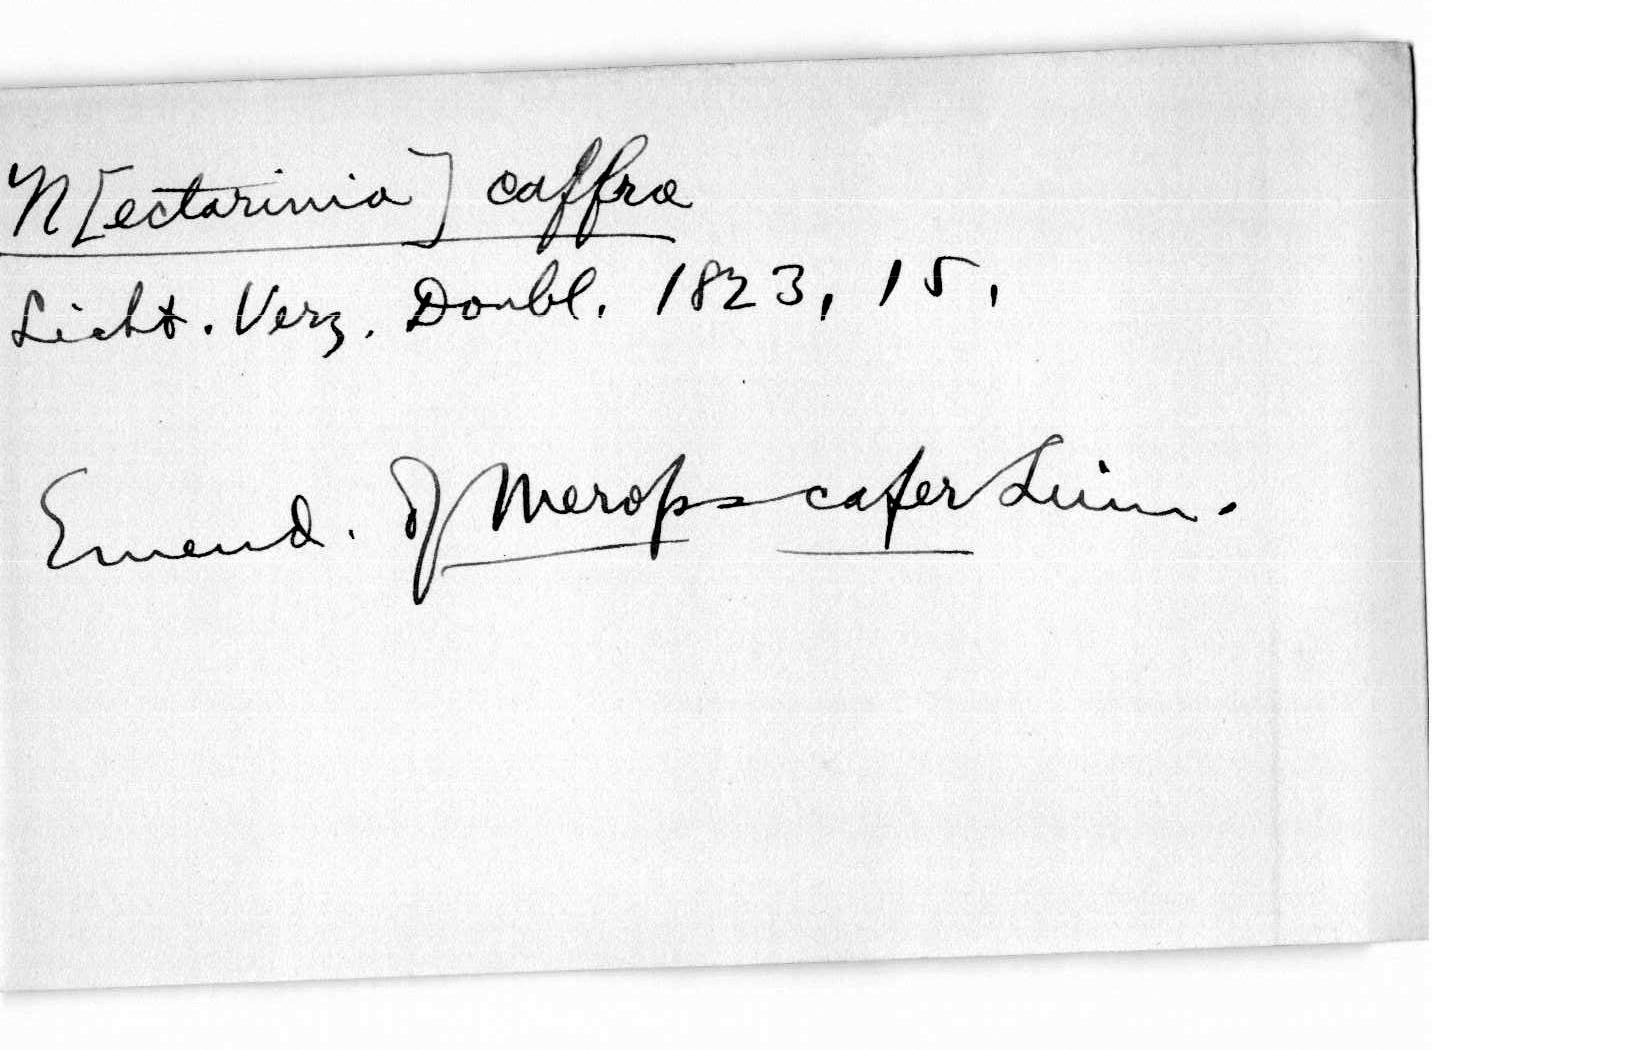 N[ectarinia] caffra
Licht. Verz. Doubl. 1823, 15,
Emend. of Merops cafer Linn.